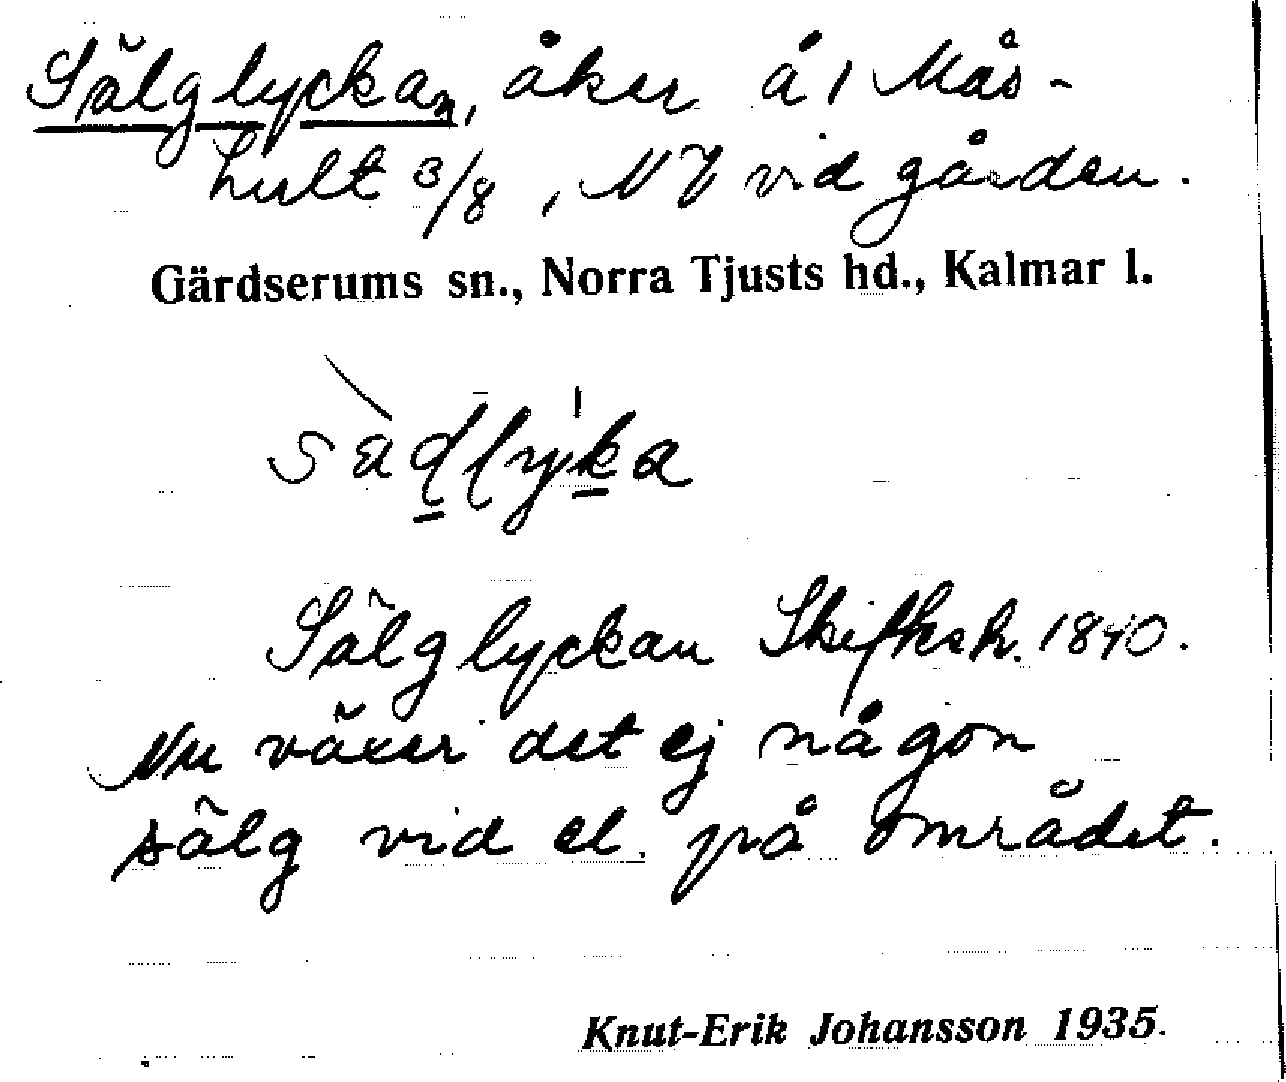 Sälglyckan, åker å 1 Mås-
hult 3/8, NV vid gården.
Gärdserums sn., Norra Tjusts hd., Kalmar l.
Sälglyckan Skifksh. 1840.
Nu växer det ej någon
sälg vid el. på området.
Knut-Erik Johansson 1935.